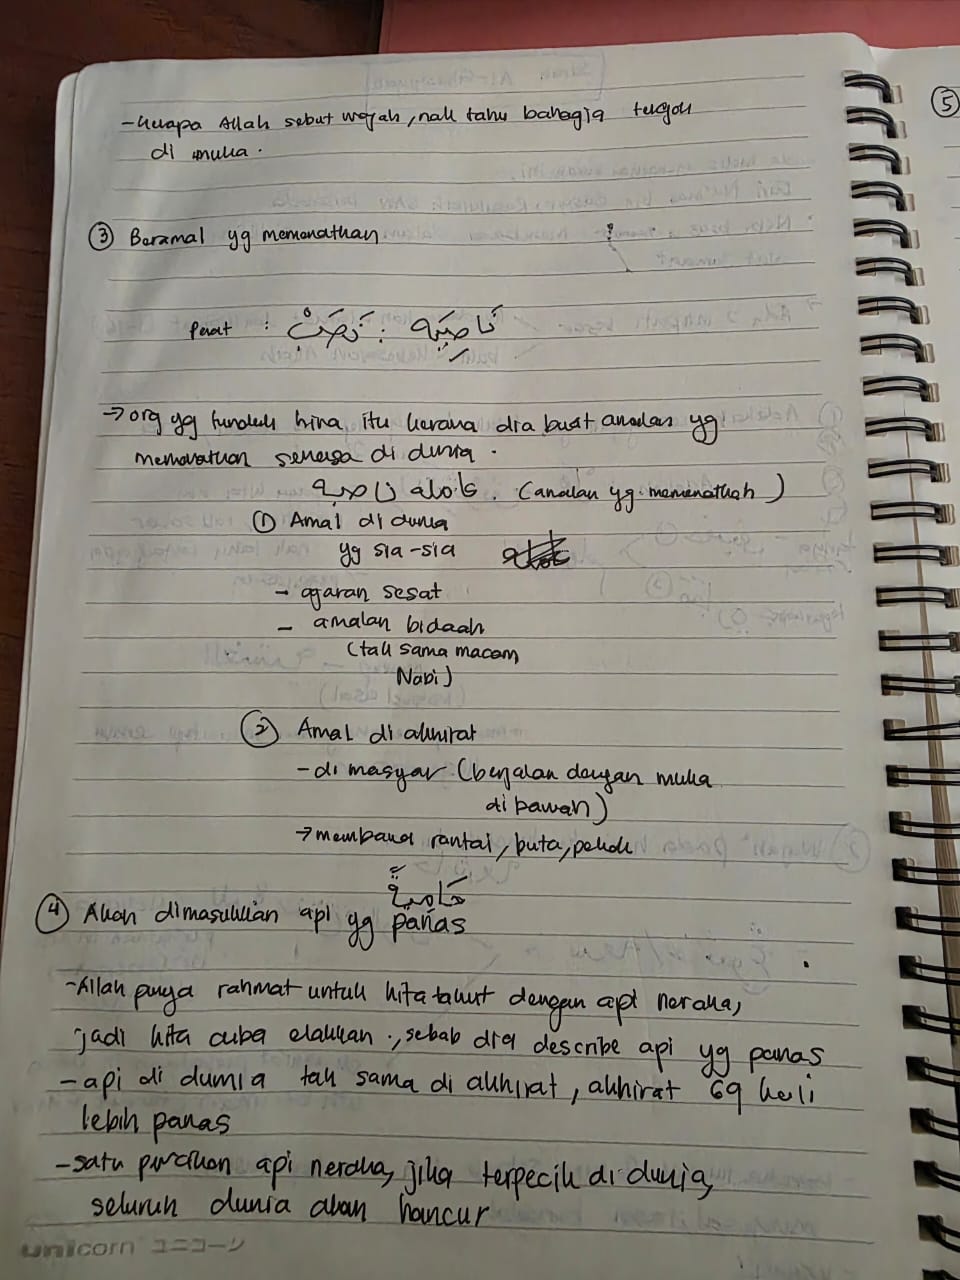 - kenapa Allah sebut wajah, nak tahu bahagia tengok
di muka.
⑤
③ Beramal yg memenatkan
penat : نَصَبْ : نَاصِبَه
→ org yg tunduk hina itu kerana dia buat amalan yg
memenatkan semasa di dunia.
عاملة ناصبة. (amalan yg memenatkan)
① Amal di dunia
yg sia-sia
- ajaran sesat
- amalan bidaah
(tak sama macam
Nabi)
② Amal di akhirat
- di masyar (berjalan dengan muka
di bawah)
→ membawa rantai, buta, pekak
حَامِيَةً
④ Akan dimasukkan api yg panas
- Allah punya rahmat untuk kita takut dengan api neraka,
jadi kita cuba elakkan., sebab dia describe api yg panas
- api di dunia tak sama di akhirat, akhirat 69 kali
lebih panas
- satu percikan api neraka, jika terpecik di dunia,
seluruh dunia akan hancur
unicorn ユニコーン